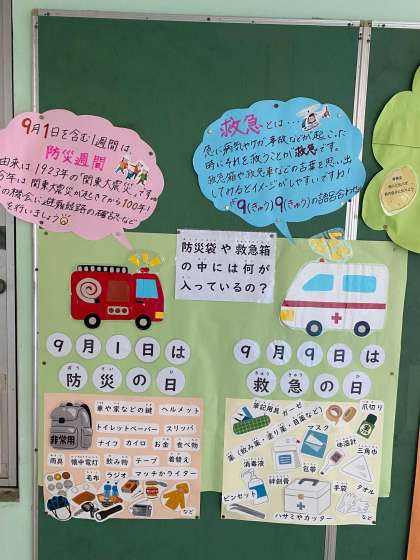 9月1日を含む1週間は、
防災週間
由来は1923年の"関東大震災"です。
今年は、関東大震災が起きてから100年!
この機会に避難経路の確認など
を行いましょう
救急とは…
急に病気やケガ、事故などが起こった
時にそれを救うことが救急です。
救急箱や救急車などの言葉を思い出
してみるとイメージがしやすいですね!
9(きゅう)9(きゅう)の語呂合わせ
防災袋や救急箱
の中には何が
入っているの?
9月1日は
ぼうさい ひ
防災の日
9月9日は
きゅうきゅう ひ
救急の日
非常用
車や家などの鍵 ヘルメット
トイレットペーパー スリッパ
ナイフ カイロ お金 食べ物
雨具 懐中電灯 飲み物 テープ 着替え
毛布 ラジオ マッチかライター
など
筆記用具 ガーゼ 爪切り
マスク
薬(飲み薬・塗り薬・目薬など)
体温計
三角巾
消毒液
包帯
絆創膏
手袋
タオル
ピンセット
ハサミやカッター
など